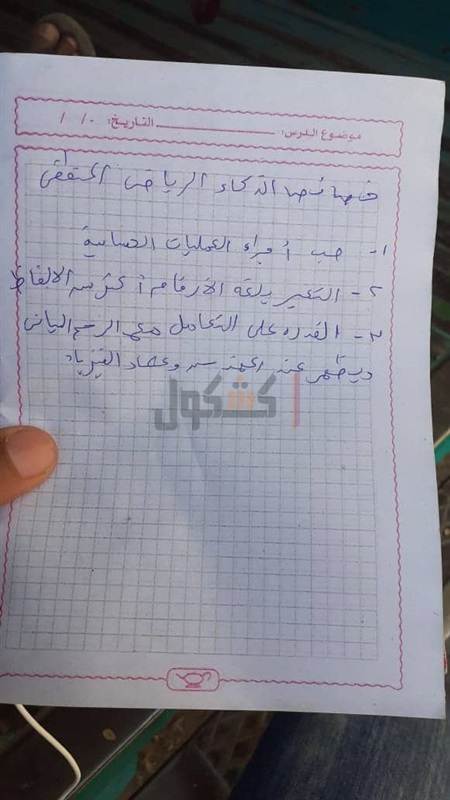 موضوع الدرس: التاريخ: / /
خصائص الذكاء الرياضى المنطقى
١- حب أجراء العمليات الحسابية
٢- التعبير بلغة الأرقام أكثر من الالفاظ
٣- القدره على التعامل مع الرسم البيانى
ويظهر عند المهندسين وعلماء الفيزياء
كشكول